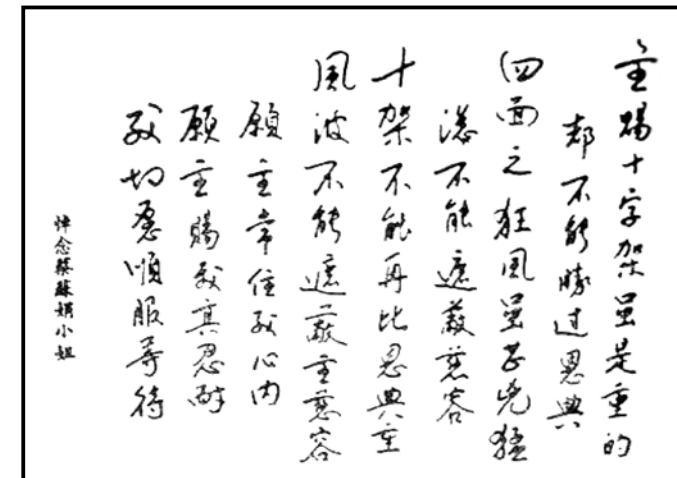 主賜十字架虽是重的
却不能勝过恩典
四面之狂風虽甚兇猛
不能遮蔽慈容
十架不能再比恩典重
風波不能遮蔽主慈容
願主常住我心内
願主賜我真忍耐
我切愿順服等待
悼念蔡蘇娟小姐